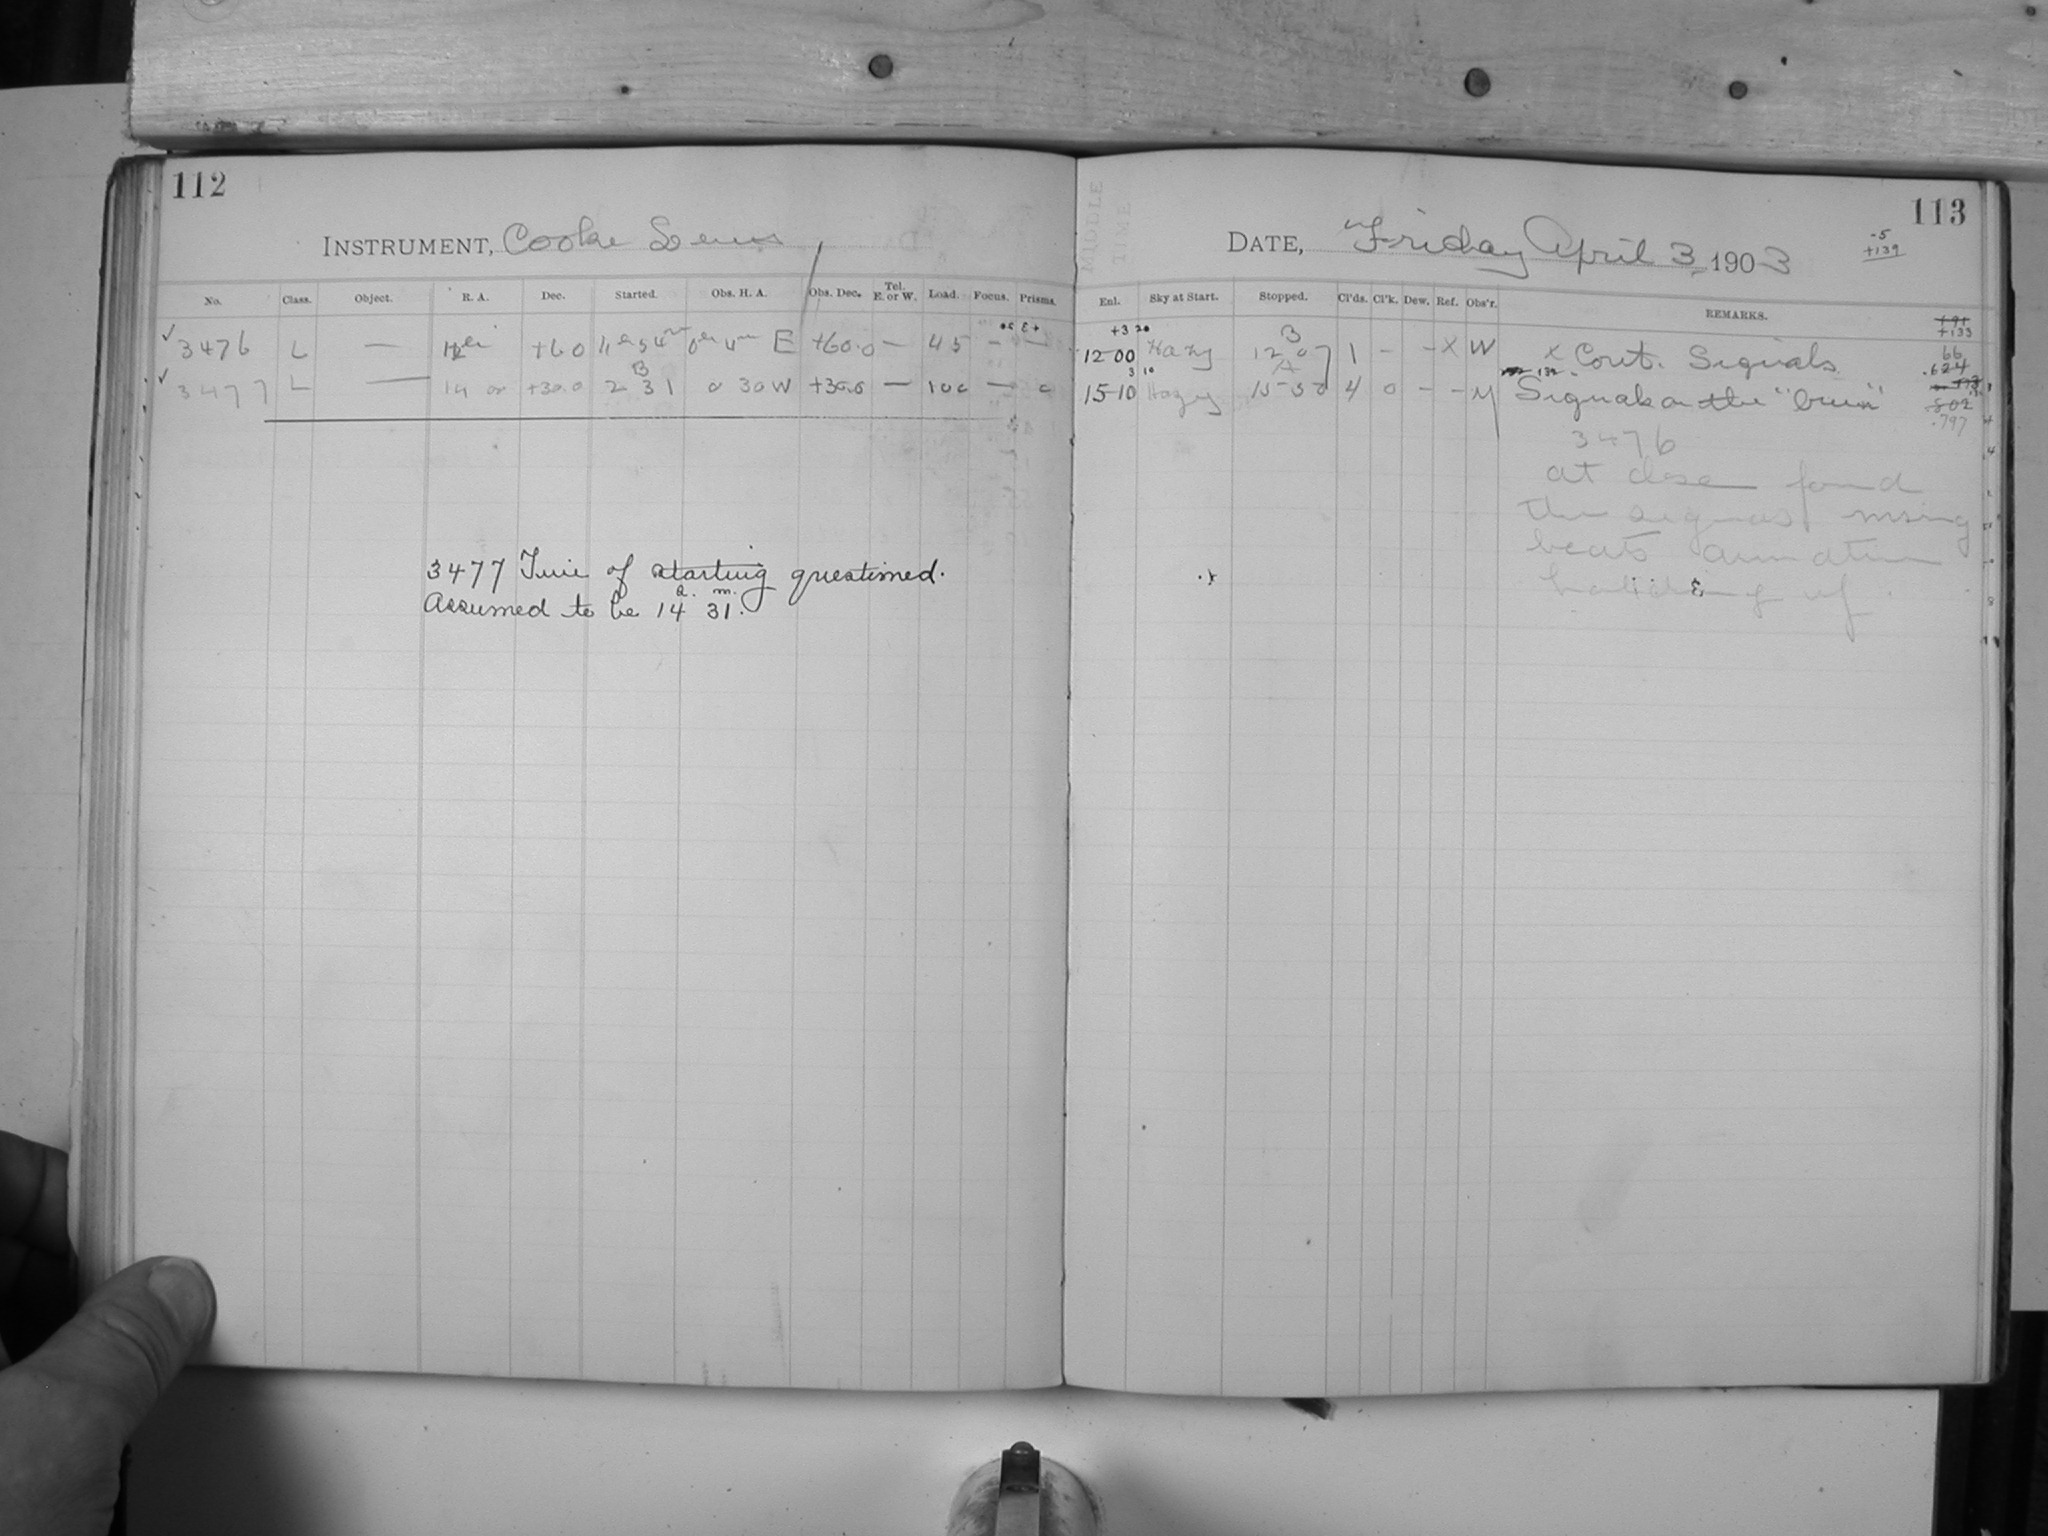 112
INSTRUMENT, Cooke Lens
No. Class. Object. R. A. Dec. Started. Obs. H. A. Obs. Dec. Tel. E. or W. Load. Focus. Prisms.
✓ 3476 L — 12h +60 11h 54m 0h 4m E +60.0 — 45 — —
B
✓ 3477 L — 14 00 +30.0 2 31 0 30 W +30.0 — 100 — 0
3477 Time of starting questioned.
Assumed to be 14h. 31m.
MIDDLE TIME
113
DATE, Friday April 3 1903
-5
+139
Enl. Sky at Start. Stopped. Cl'ds. Cl'k. Dew. Ref. Obs'r. REMARKS.
+3 20
+133
B
12 00 Hazy 12 07 1 - - X W X Cont. Signals
66
.624
3 10
A
15 10 Hazy 15 50 4 0 - - M Signals on the
802
.797
3476
at close found
the signals missing
beats